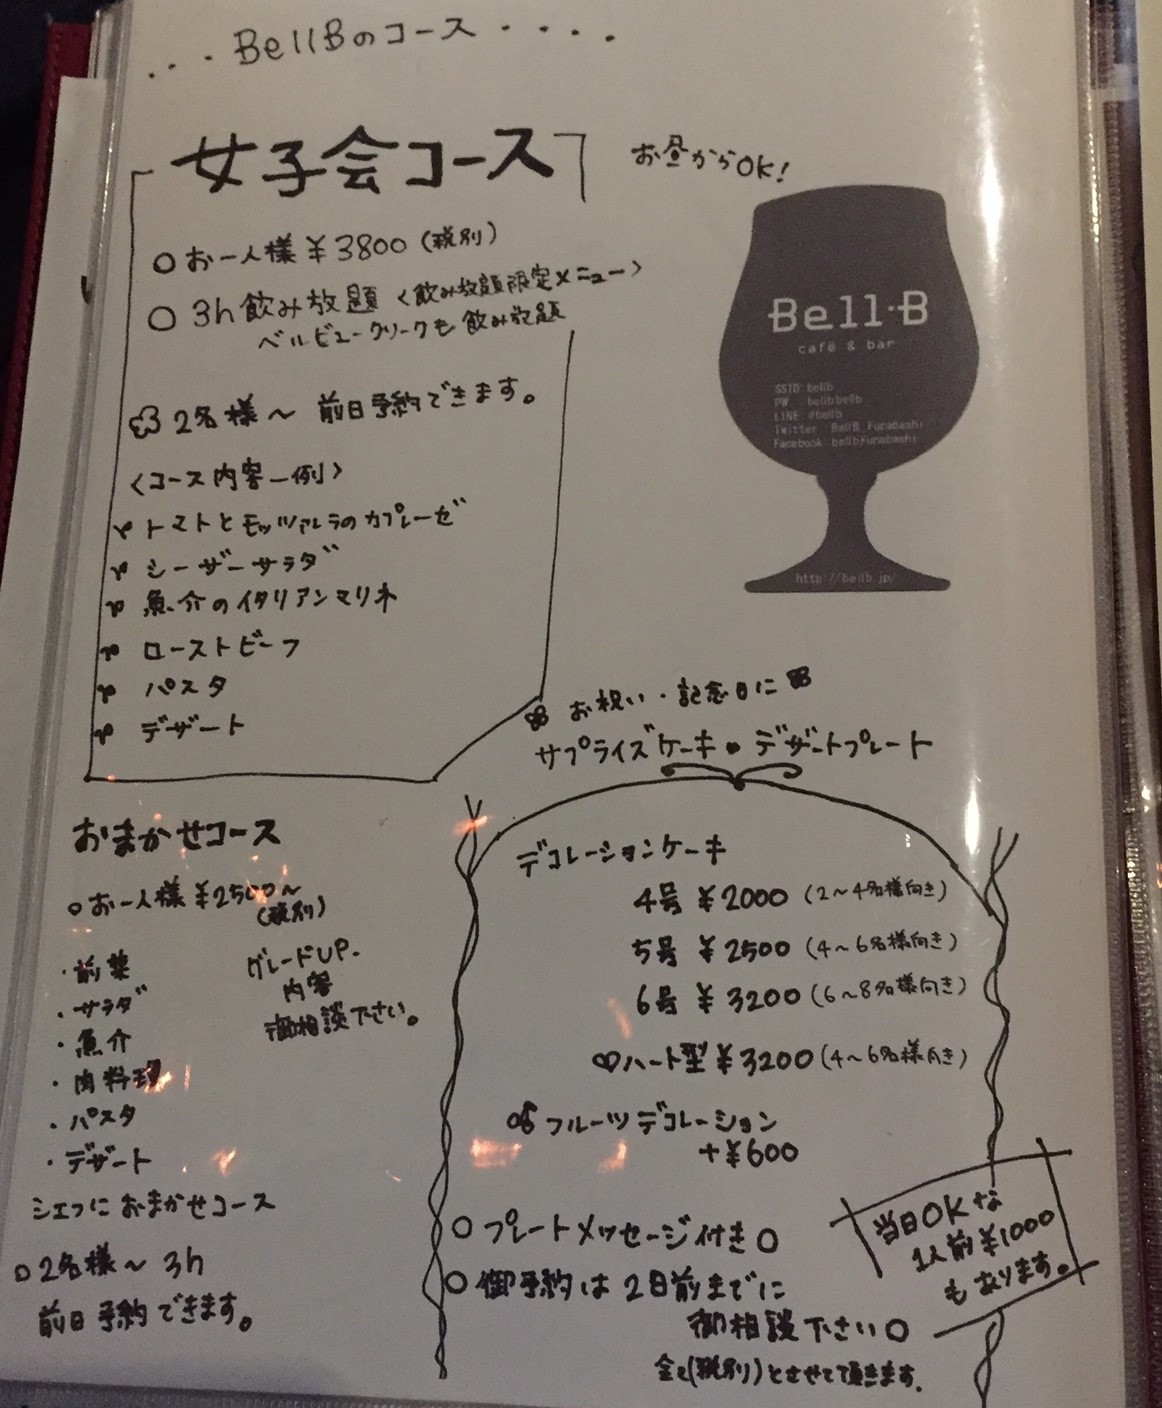 ...BellBのコース.....
女子会コース
お昼からOK!
○お一人様¥3800(税別)
○3h飲み放題<飲み放題限定メニュー>
ベルビュークリークも飲み放題
2名様〜前日予約できます。
<コース内容一例>
トマトとモッツァレラのカプレーゼ
シーザーサラダ
魚介のイタリアンマリネ
ローストビーフ
パスタ
デザート
Bell·B
café & bar
SSID bellb
PW bellbbellb
LINE @bellb
Twitter BellB_Funabashi
Facebook bellbfunabashi
http://bellb.jp/
お祝い・記念日に
サプライズケーキ・デザートプレート
おまかせコース
○お一人様¥2500〜
(税別)
・前菜
・サラダ
・魚介
・肉料理
・パスタ
・デザート
グレードUP.
内容
御相談下さい。
シェフにおまかせコース
○2名様〜3h
前日予約できます。
デコレーションケーキ
4号 ¥2000(2〜4名様向き)
5号 ¥2500(4〜6名様向き)
6号 ¥3200(6〜8名様向き)
♡ハート型¥3200(4〜6名様向き)
フルーツデコレーション
+¥600
○プレートメッセージ付き○
○御予約は2日前までに
御相談下さい○
全て(税別)とさせて頂きます.
当日OKな
1人前¥1000
もあります。